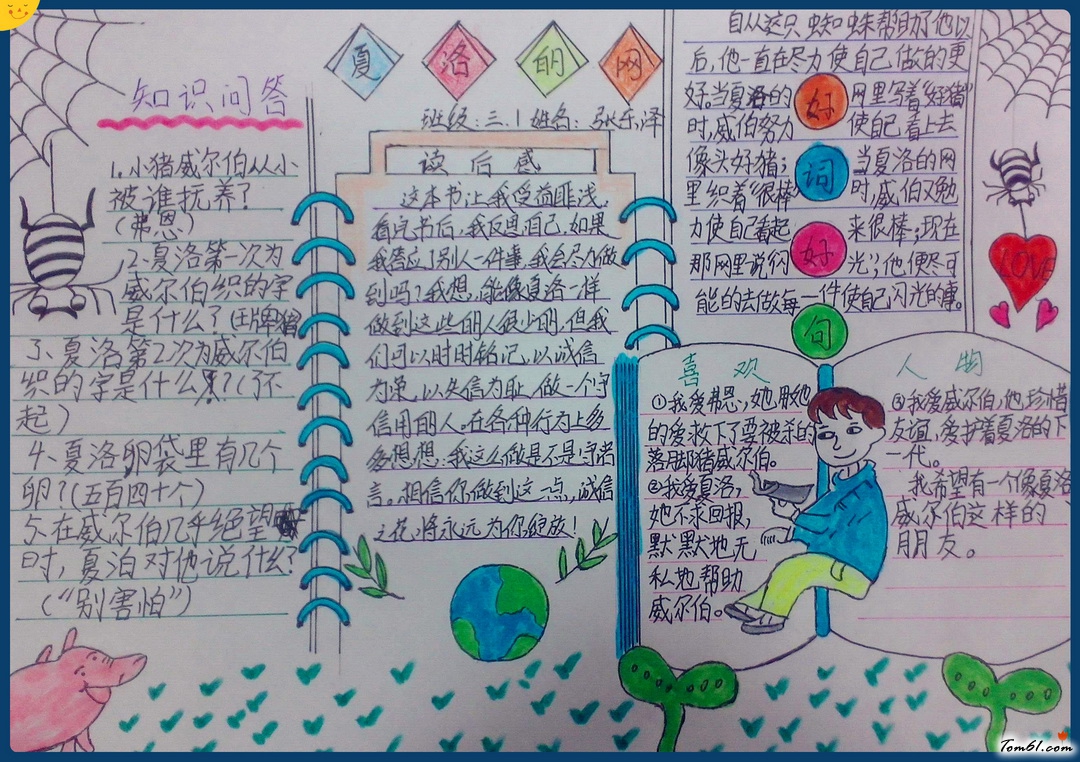 夏洛的网
班级:三.1 姓名:张乐泽
知识问答
1.小猪威尔伯从小
被谁抚养?
(弗恩)
2、夏洛第一次为
威尔伯织的字
是什么?(王牌猪)
3、夏洛第2次为威尔伯
织的字是什么?(了不
起)
4、夏洛卵袋里有几个
卵?(五百四十个)
5、在威尔伯几乎绝望
时,夏洛对他说什么?
(“别害怕”)
读后感
这本书让我受益匪浅。
看完书后,我反思自己,如果
我答应了别人一件事,我会尽力做
到吗?我想,能像夏洛一样
做到这些的人很少的,但我
们可以时时铭记,以诚信
为荣,以失信为耻,做一个守
信用的人。在各种行为上多
多想想:我这么做是不是守诺
言。相信你做到这一点,诚信
之花,将永远为你绽放!
好词好句
自从这只蜘蛛帮助了他以
后,他一直在尽力使自己做的更
好。当夏洛的网里写着“好猪”
时,威伯努力使自己看上去
像头好猪;当夏洛的网
里织着“很棒”时,威伯又勉
力使自己看起来很棒;现在
那网里说“闪光”,他便尽可
能的去做每一件使自己闪光的事。
喜欢人物
①我爱弗恩,她用她
的爱救下了要被杀的
落脚猪威尔伯。
②我爱夏洛,
她不求回报,
默默地无
私地帮助
威尔伯。
③我爱威尔伯,他珍惜
友谊,爱护着夏洛的下
一代。
我希望有一个像夏洛
威尔伯这样的
朋友。
LOVE
Tom61.com